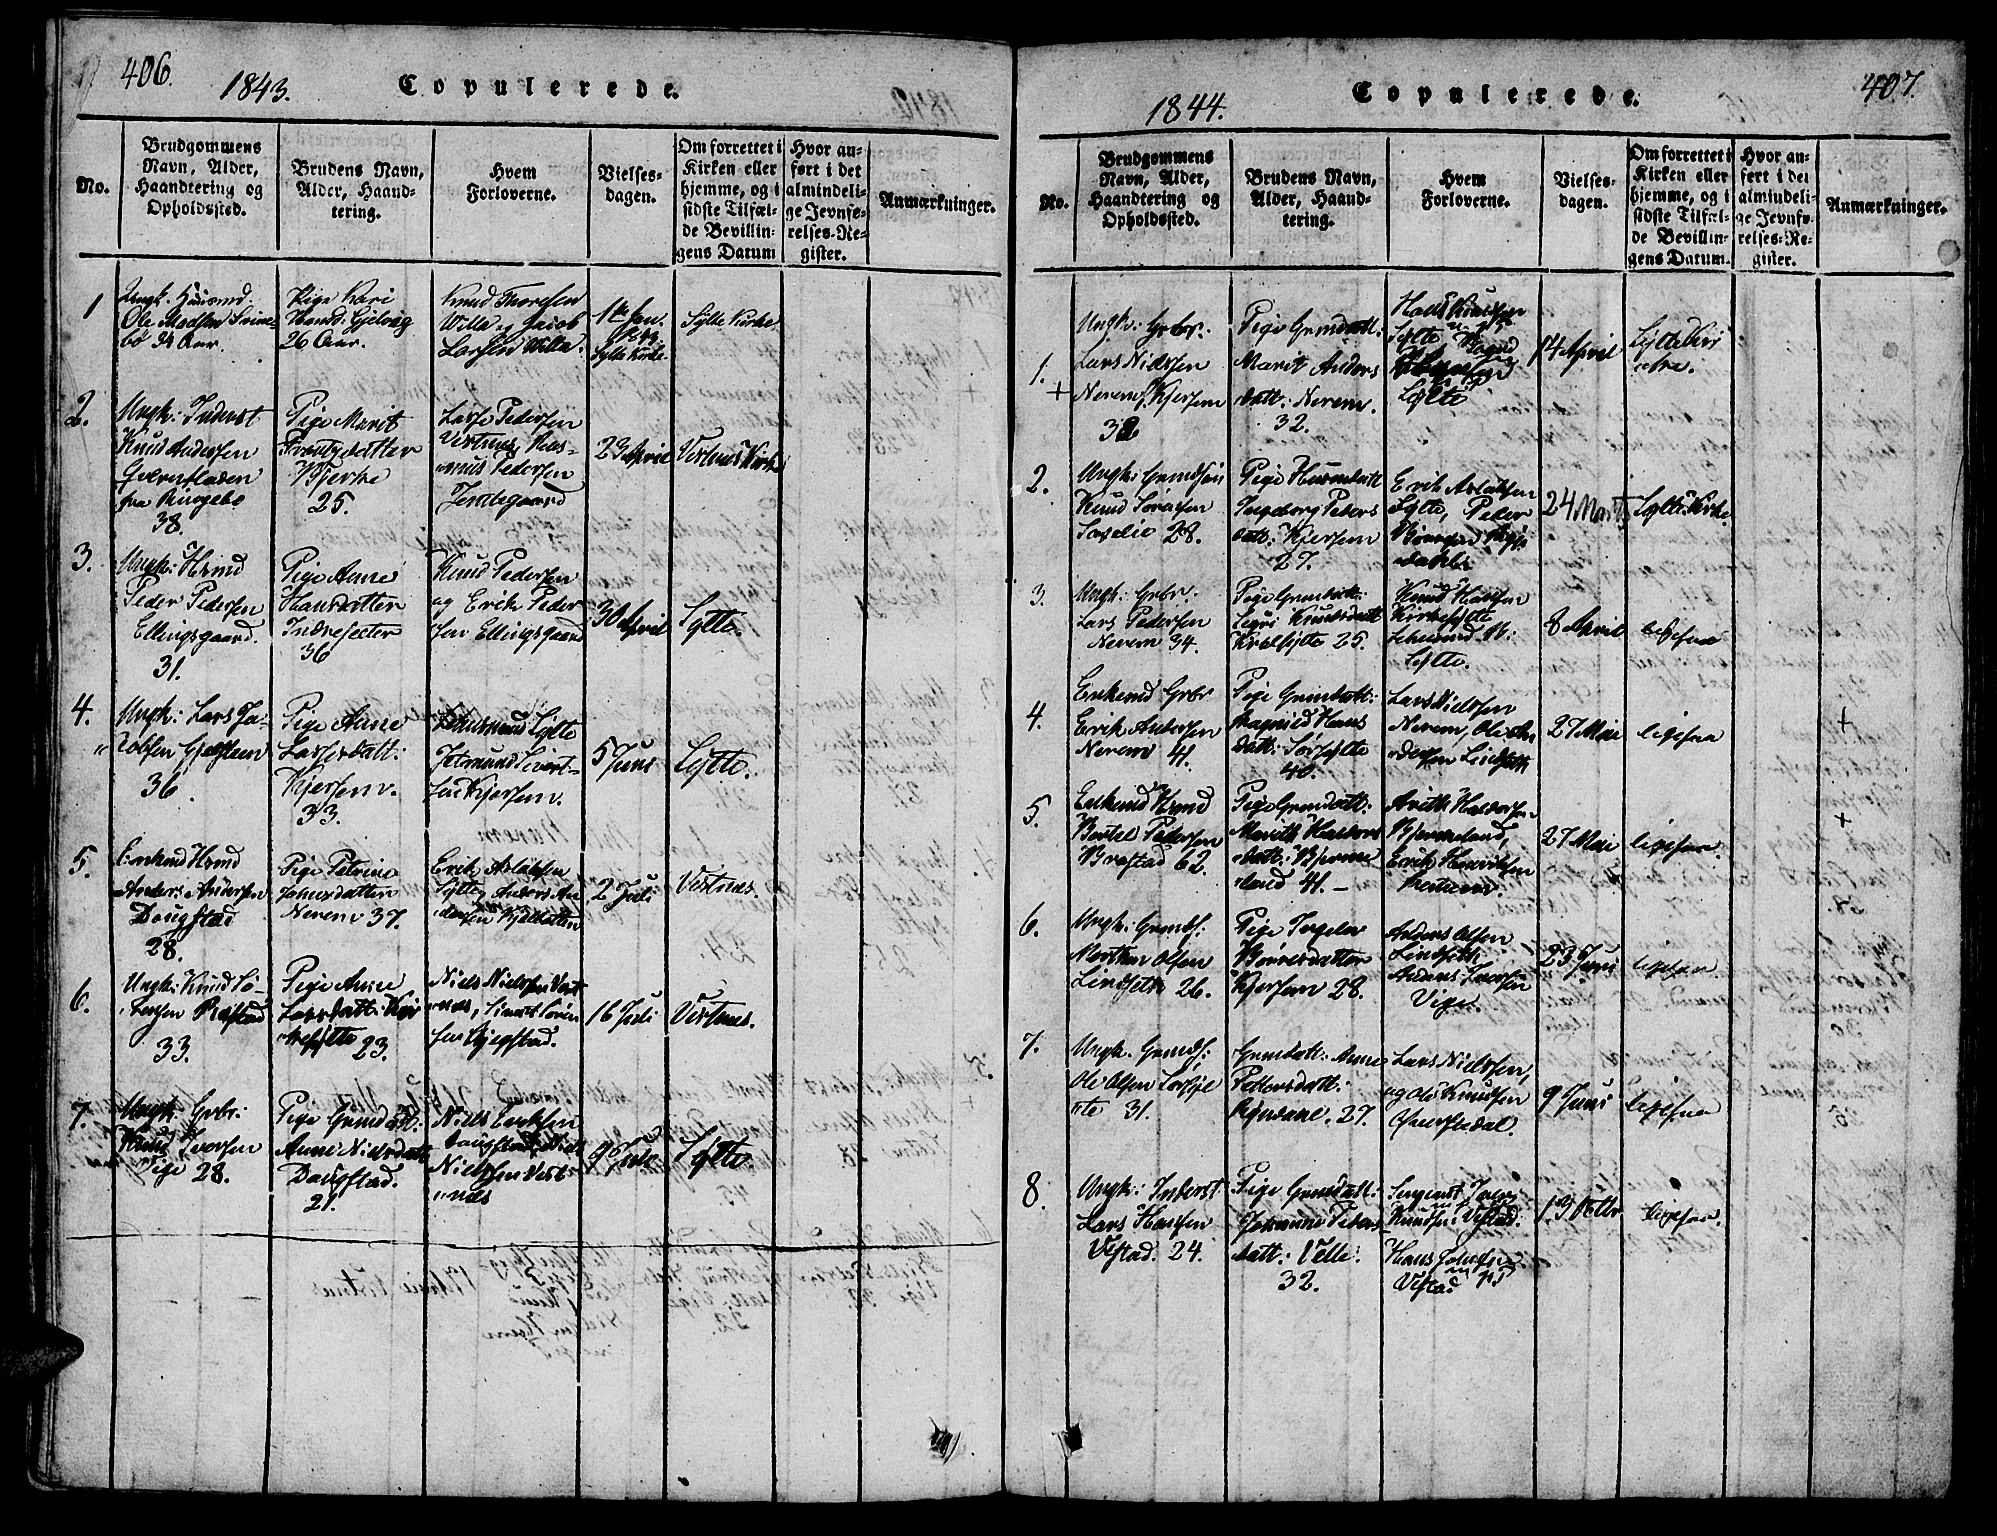 406.
1843.
Copulerede.
No.
Brudgommens
Navn, Alder,
Haandtering og
Opholdssted.
Brudens Navn,
Alder, Haand-
tering.
Hvem
Forloverne.
Vielses-
dagen.
Om forrettet i
Kirken eller
hjemme, og i
sidste Tilfæl-
de Bevillin-
gens Datum
Hvor an-
ført i det
almindeli-
ge Jevnfø-
relses-Re-
gister.
Anmærkninger.
1
Ungk. Huusmd.
Ole Madsen
bø 34 Aar.
Pige Kari
Hansd. Gjelvig
26 Aar.
Knud Thoresen
Villa og Jacob
Larsen Villa.
1te Jan.
1843
Sylte Kirke
Sylte Kirke
2.
Ungk: Inderst
Knud Andersen
fra Ringebo
38.
Pige Marit
Bjerke
25.
Lasse Pedersen
Vestnes, Ras-
mus Pedersen
Jemtegaard
23 April
Vestnes Kirke
3.
Ungk: Hsmd
Peder Pedersen
Ellingsgaard.
31.
Pige Anne
Hansdatter
36
Knud Pedersen
og Erik Peder
sen Ellingsgaard
30 April
Sylte.
4.
Ungk: Lars Ja-
cobsen
36
Pige Anne
Lassesdatt:
Kjersem.
33.
Sylte
Jetmund Sivert-
sen Kjersem.
5 Juni
Sylte.
5.
Enkemd Hsmd
Anders Andersen
Dougstad
28.
Pige Petrine
Jonasdatter
Nerem 37.
Erik Aslaksen
Sylte, Anders An-
dersen
2 Juli
Vestnes.
6.
Ungk: Knud Lo-
33.
Pige Anne
Larsdatt: Kir
kesylte 23.
Niels Nielsen Vest
nes, Sivert Soren
sen
16 Juli
Vestnes.
7.
Ungk: Grbr:
Knud Iversen
Vige 28.
Pige Grmdatt.
Anne Nielsdatt
Dougstad.
21.
Niels Eriksen
Dougstad, Niels
Nielsen Vest-
nes
9 Juli
Sylte.
407.
1844.
Copulerede.
No.
Brudgommens
Navn, Alder,
Haandtering og
Opholdssted.
Brudens Navn,
Alder, Haand-
tering.
Hvem
Forloverne.
Vielses-
dagen.
Om forrettet i
Kirken eller
hjemme, og i
sidste Tilfæl-
de Bevillin-
gens Datum.
Hvor an-
ført i det
almindeli-
ge Jevnfø-
relses-Re-
gister.
Anmærkninger.
1.
+
Ungk: Grbr:
Lars Nielsen
Nerem, Kjersem
32
Pige Grmdatt:
Marit Anders
datt: Nerem.
32.
Hans Knudsen
Sylte
Sylte
14 April
Sylte Kir
ke.
2.
Ungk: Grmdsøn
Knud Sørensen
28.
Pige Husmdatt
Ingeborg Peders
datt: Kjersem
27.
Erik Aslaksen
Sylte, Peder
24 Marts
Sylte Kirke
3.
Ungk: Grbr:
Lars Pedersen
Nerem 34.
Pige Grmdatt:
Sigri Knudsdatt
Kirksylte 25.
Knud Hansen
Kirkesylte
Sylte.
8 April
ligesaa
4.
Enkemd Grbr
Erik Andersen
Nerem 41.
Pige Grmdatt:
Magnild Hans
datt: Sørsylte
40.
Lars Nielsen
Nerem, Ole An
dersen Lindset
27 Mai
ligesaa
+
5.
Enkemd Hsmd
Bertel Pedersen
Brastad 62.
Pige Grmdatt:
Marith Haldors
datt: Bjerme
land 41.-
Arith Haldorsen
Bjermeland,
Erik Henriksen
27 Mai
ligesaa.
+
6.
Ungk: Grmds:
Morthen Olsen
Lindseth 26.
Pige Ingeler
Børresdatter
Kjersem 28.
Anders Olsen
Lindseth
Anders Larsen
Vige.
23 Juni
ligesaa
7.
Ungk. Grmds:
Ole Olsen Sørsyl
te 31.
Grmdatt: Anne
Pedersdatt:
27.
Lars Nielsen,
og Ole Knudsen
9 Juni
ligesaa
8.
Ungk: Inderst
Lars Hansen
Vestad. 24.
Pige Grmdatt:
Johanne Peders
datt: Velle.
32.
Sergeant
Knudsen Vestad.
Hans Johnsen
Vestad
13 Octbr
ligesaa.